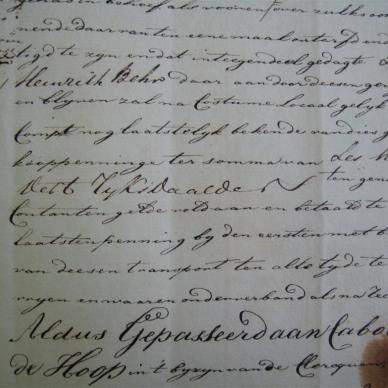 in behoef als vooren over zulks
nende daar van ten eene maal onterfd en
tigd te zyn en dat integendeel gedagte
Heinrich Behr daar aan door deesen
en blyven zal na Costume Locaal
Compt nog laatstelyk bekende van dies
kooppenninge ter somma van Ses
Dert Ryksdaalde
Contanten gelde voldaan en betaald te
laatsten penning by den eersten met
van deesen transport ten alle tyde te
vryen en waaren onder verband als na
Aldus Gepasseerd aan Cabo
de Hoop in't bysyn van de Clercquen